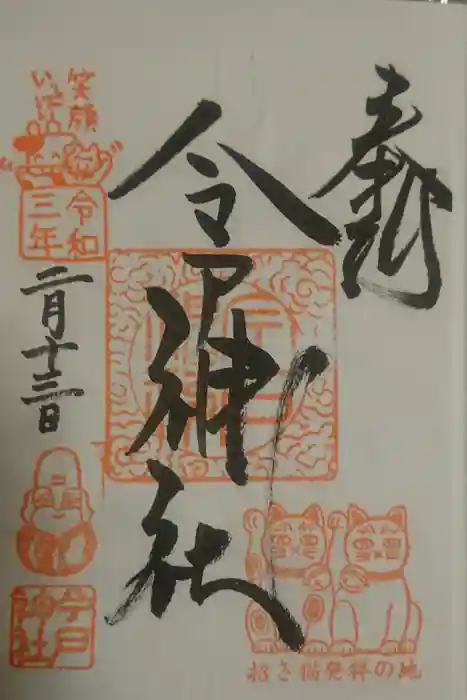 奉拝
今戸神社
招き猫発祥の地
笑顔
いっぱい
令和
三年
二月十三日
今戸
神社